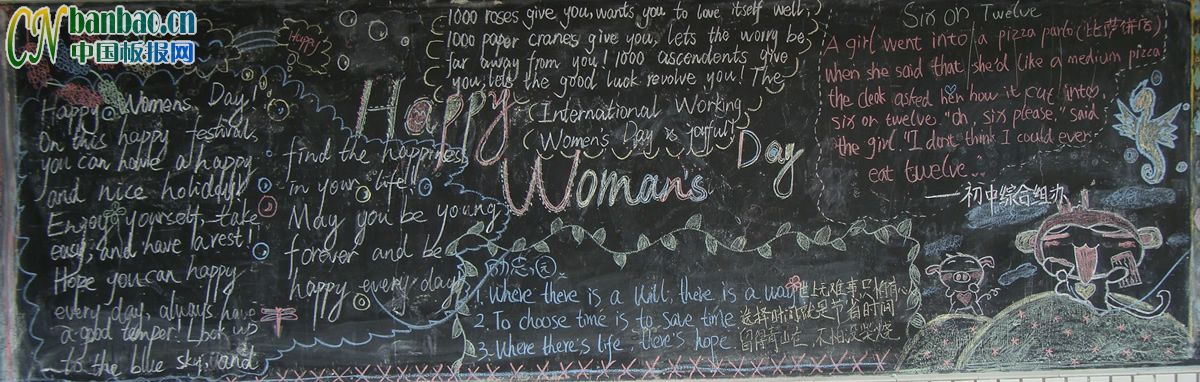 banbao.cn
中国板报网
Happy
Happy Womens Day!
On this happy festival,
you can have a happy
and nice holiday!
Enjoy yourself, take
easy, and have a rest!
Hope you can happy
every day, always have
a good temper! Look up
to the blue sky, and
find the happiness
in your life!
May you be young
forever and be
happy every day!
Happy
Woman's
Day
1000 roses give you, wants you to love itself well;
1000 paper cranes give you, lets the worry be
far away from you! 1000 ascendents give
you, lets the good luck revolve you! The
International Working
Women's Day is joyful!
1. Where there is a will, there is a way 世上无难事只怕有心
2. To choose time is to save time 选择时间就是节省时间
3. Where there's life, there's hope. 留得青山在 不怕没柴烧
Six or Twelve
A girl went into a pizza parlo (比萨饼店)
when she said that she'd like a medium pizza
the cleak asked her how it cut into,
six or twelve. "Oh, six please," said
the girl "I don't think I could ever
eat twelve..
—初中综合组办